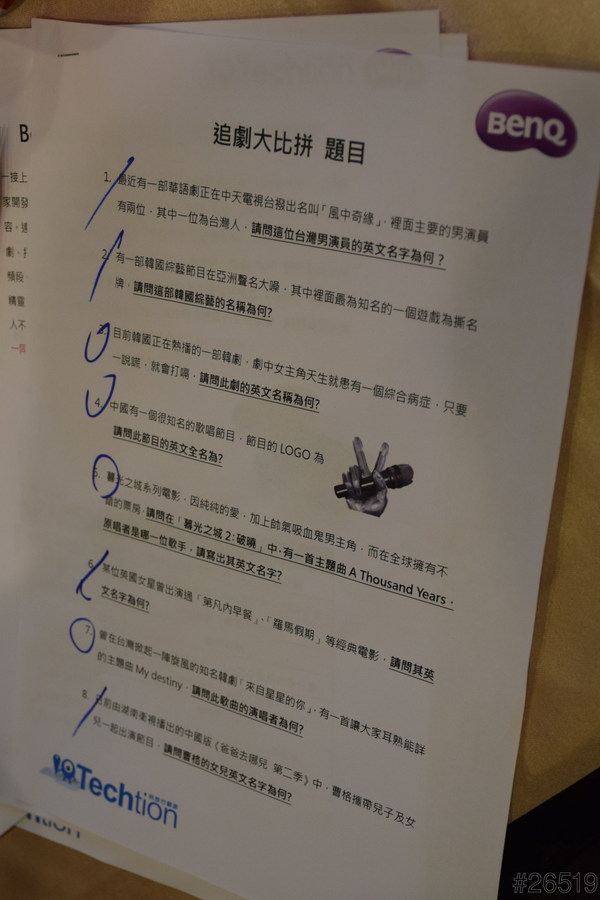 BenQ
追劇大比拼 題目
1. 最近有一部華語劇正在中天電視台撥出名叫「風中奇緣」，裡面主要的男演員
有兩位，其中一位為台灣人，請問這位台灣男演員的英文名字為何？
2. 有一部韓國綜藝節目在亞洲聲名大噪，其中裡面最為知名的一個遊戲為撕名
牌，請問這部韓國綜藝的名稱為何?
3. 目前韓國正在熱播的一部韓劇，劇中女主角天生就患有一個綜合病症，只要
一說謊，就會打嗝，請問此劇的英文名稱為何?
4. 中國有一個很知名的歌唱節目，節目的 LOGO 為
請問此節目的英文全名為?
5. 暮光之城系列電影，因純純的愛，加上帥氣吸血鬼男主角，而在全球擁有不
錯的票房，請問在「暮光之城 2: 破曉」中，有一首主題曲 A Thousand Years，
原唱者是哪一位歌手，請寫出其英文名字?
6. 某位英國女星曾出演過「第凡內早餐」、「羅馬假期」等經典電影，請問其英
文名字為何?
7. 曾在台灣掀起一陣旋風的知名韓劇「來自星星的你」，有一首讓大家耳熟能詳
的主題曲 My destiny，請問此歌曲的演唱者為何?
8. 目前由湖南衛視播出的中國版《爸爸去哪兒 第二季》中，曹格攜帶兒子及女
兒一起出演節目，請問曹格的女兒英文名字為何?
Techtion
一接上
家開發
人不
#26519